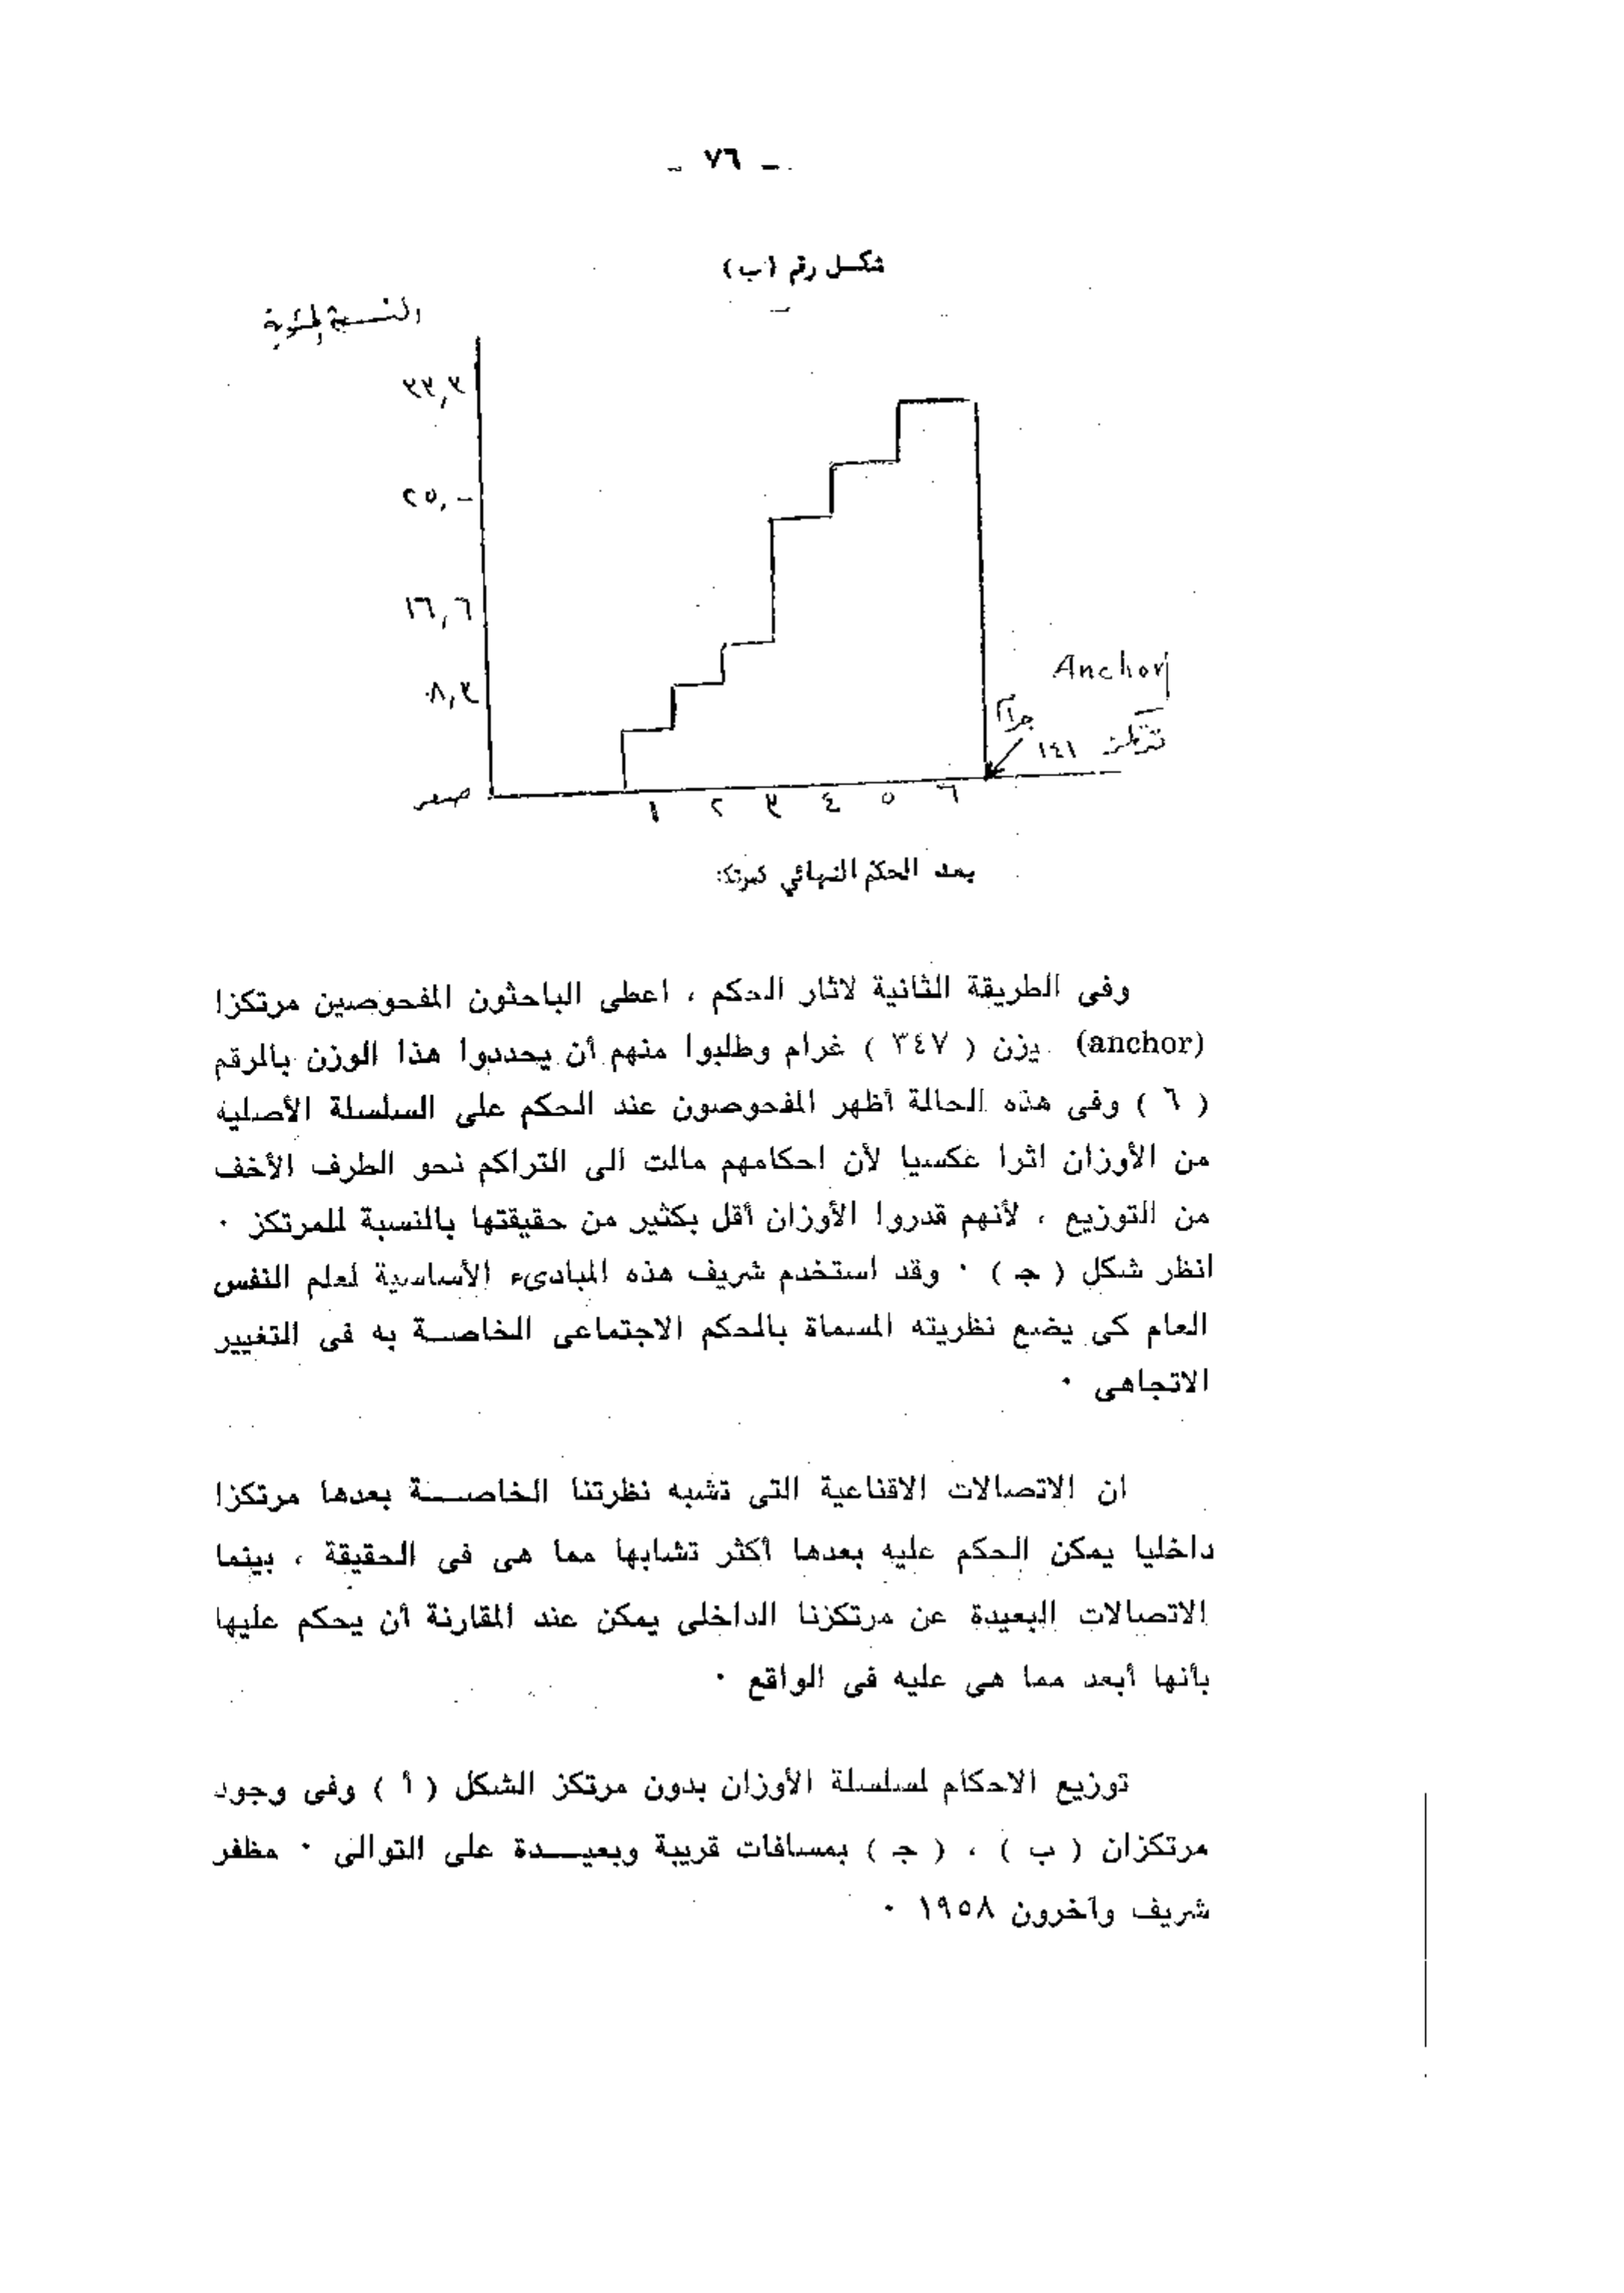 ـ ٧٦ ـ
شكـل رقم (ب)
النسبة المئوية
٣٣,٣
٢٥,ـ
١٦,٦
٨,٣
صفر
١ ٢ ٣ ٤ ٥ ٦
Anchor
١٤١
بعد الحكم النهائي
وفى الطريقة الثانية لاثار الحكم ، اعطى الباحثون المفحوصين مرتكزا
(anchor) يزن ( ٣٤٧ ) غرام وطلبوا منهم أن يحددوا هذا الوزن بالرقم
( ٦ ) وفى هذه الحالة أظهر المفحوصون عند الحكم على السلسلة الأصلية
من الأوزان اثرا عكسيا لأن احكامهم مالت الى التراكم نحو الطرف الأخف
من التوزيع ، لأنهم قدروا الأوزان أقل بكثير من حقيقتها بالنسبة للمرتكز ٠
انظر شكل ( جـ ) ٠ وقد استخدم شريف هذه المبادىء الأساسية لعلم النفس
العام كى يضع نظريته المسماة بالحكم الاجتماعى الخاصـة به فى التغيير
الاتجاهى ٠
ان الاتصالات الاقناعية التى تشبه نظرتنا الخاصــة بعدها مرتكزا
داخليا يمكن الحكم عليه بعدها أكثر تشابها مما هى فى الحقيقة ، بينما
الاتصالات البعيدة عن مرتكزنا الداخلى يمكن عند المقارنة أن يحكم عليها
بأنها أبعد مما هى عليه فى الواقع ٠
توزيع الاحكام لسلسلة الأوزان بدون مرتكز الشكل ( أ ) وفى وجود
مرتكزان ( ب ) ، ( جـ ) بمسافات قريبة وبعيــدة على التوالى ٠ مظفر
شريف وآخرون ١٩٥٨ ٠